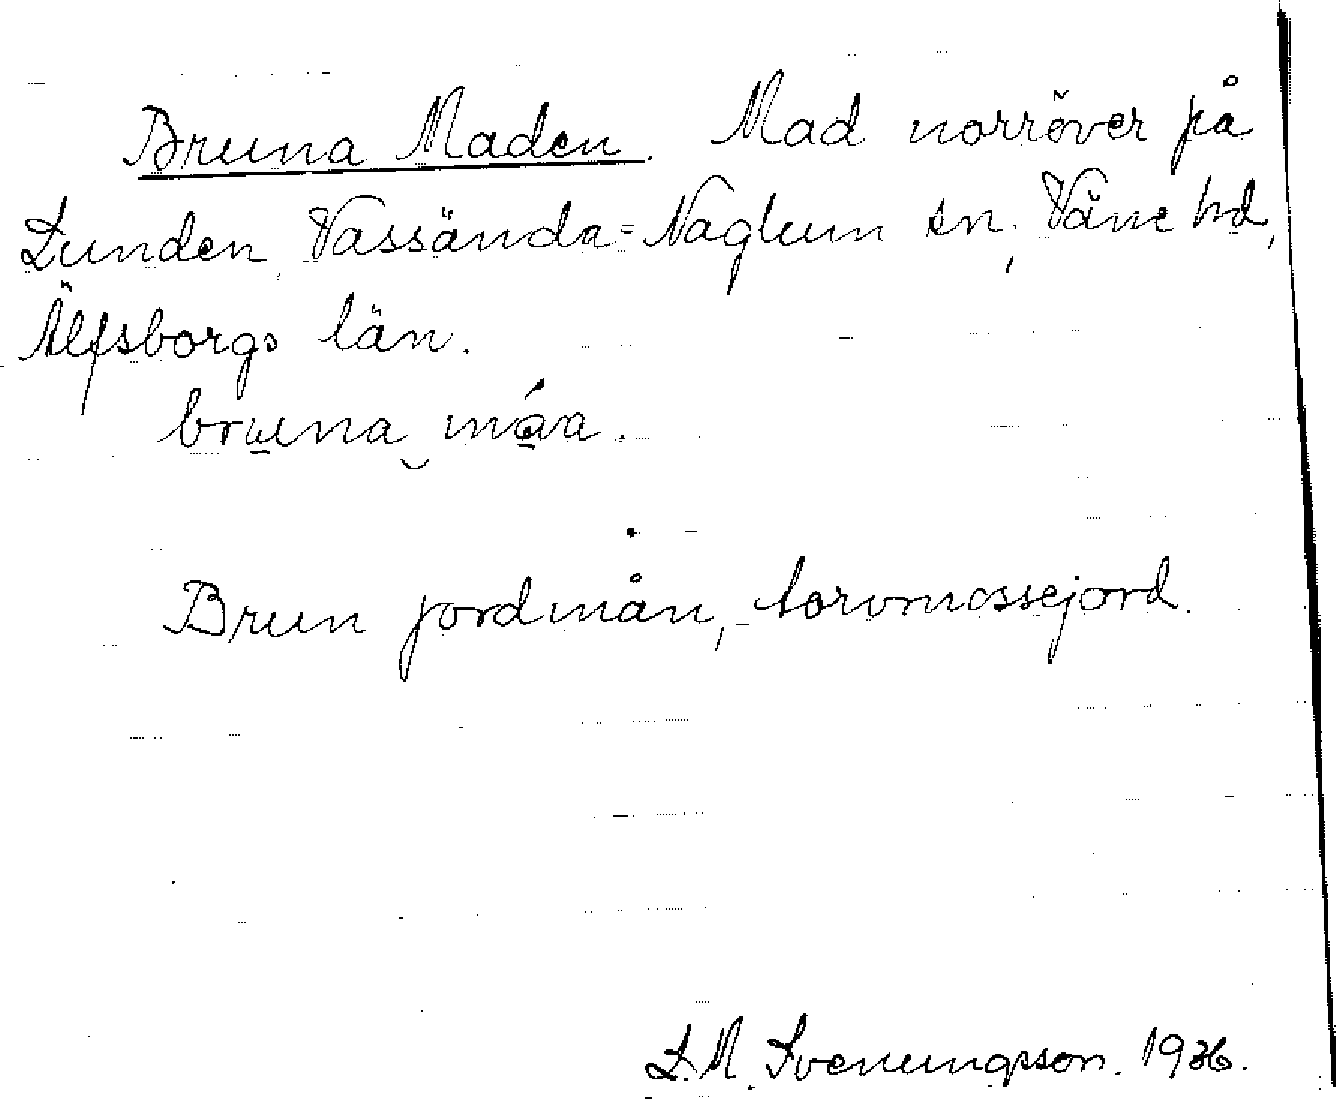 Bruna Maden. Mad norröver på
Lunden, Vassända-Naglum sn, Väne hd,
Älfsborgs län.
bruna máa.
Brun jordmån, torvmossejord.
L. M. Svenungsson. 1936.